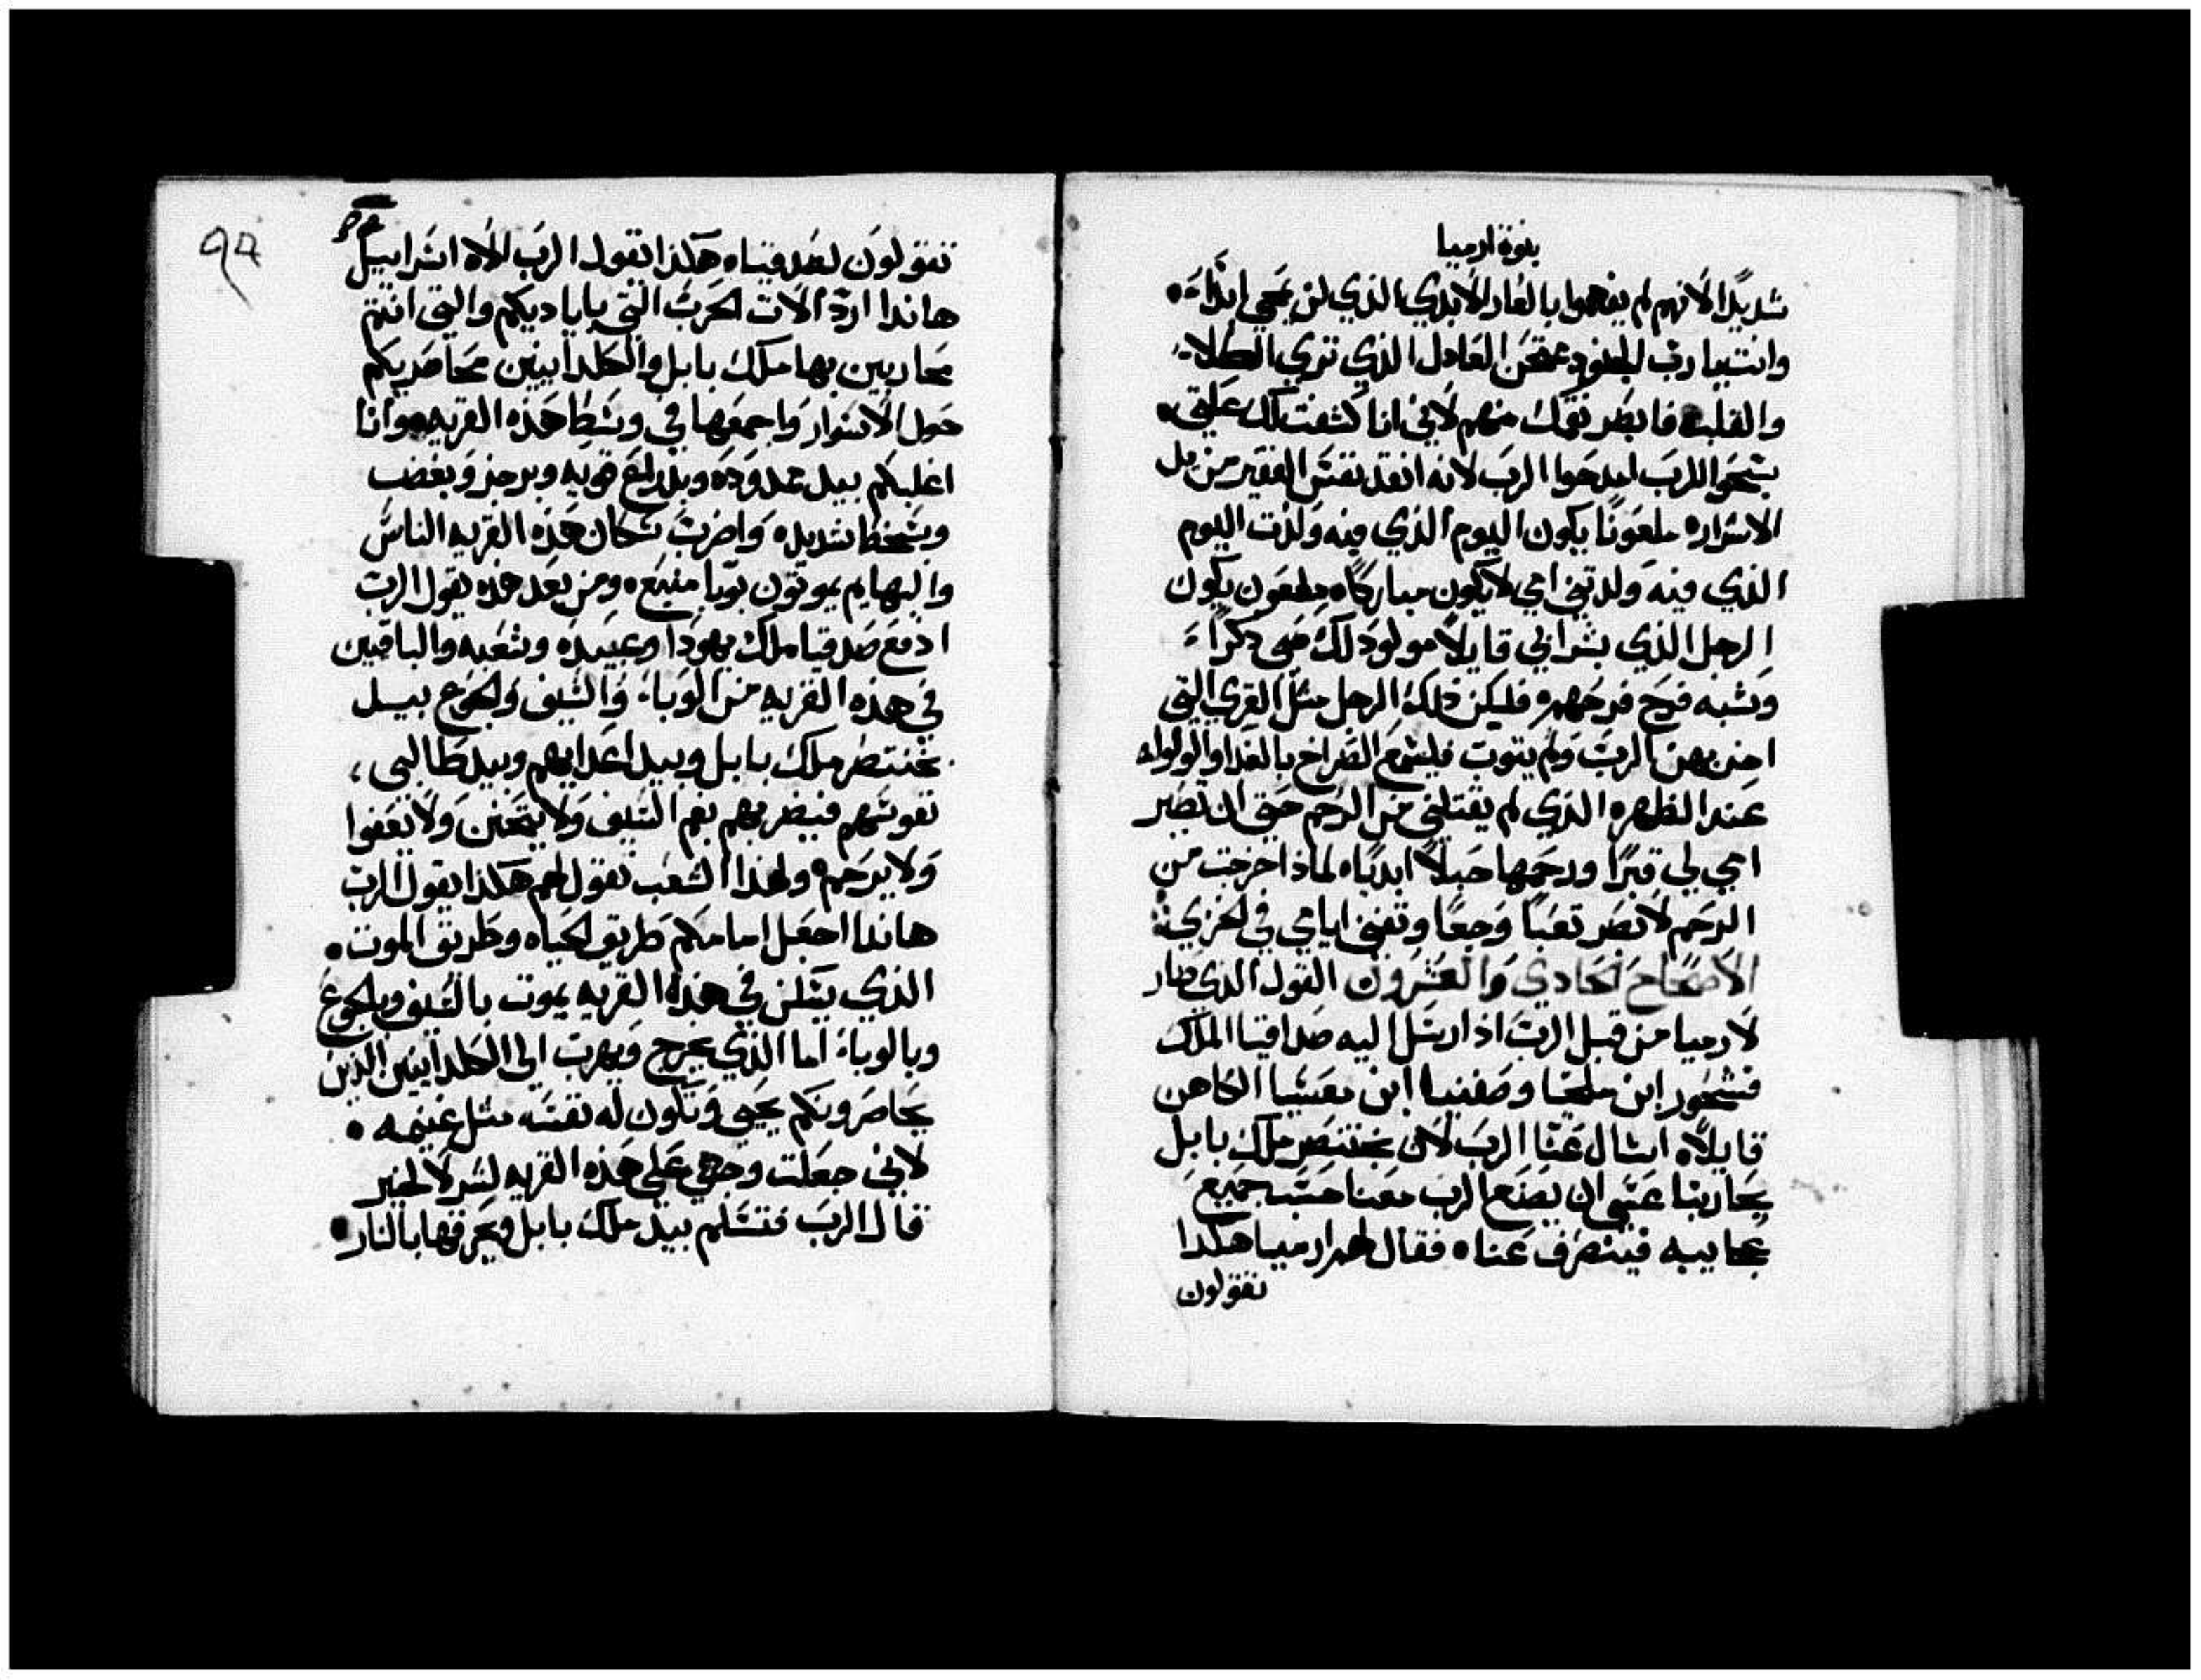 نبوة ارميا
شديدًا لانهم لم يفهموا بالعار الابدي الذي لن يمحي ابدًا
وانت يا رب الجنود ممتحن العادل الذي تري الكلاء
والقلب فابصر نقمتك منهم لاني انا كشفت لك علتي
سبحوا للرب امدحوا الرب لانه انقد نفس الفقير من يد
الاشرار ملعونًا يكون اليوم الذي فيه ولدت اليوم
الذي فيه ولدتني امي لا يكون مباركًا ملعون يكون
الرجل الذي بشر ابي قايلًا مولود لك صبي دكرًا
وشبه فرح فرحه فليكن ذلك الرجل مثل القري التي
الرب ولم يتوب فليسمع الصراخ بالغدا والولوله
عند الظهره الذي لم يقتلني من الرحم حتي ان تصير
امي لي قبرًا ورحمها حبلًا ابديًا لماذا خرجت من
الرحم لابصر تعبًا وجعًا وتفني ايامي في الخزي
الاصحاح الحادي والعشرون القول الذي صار
لارميا من قبل الرب اذ ارسل اليه صداقيا الملك
فشحور ابن ملخيا وصفنيا ابن معسيا الكاهن
قايلًا اسال عنا الرب لان بختنصر ملك بابل
يحاربنا عسي ان يصنع الرب معنا حسب جميع
عجايبه فينصرف عنا فقال لهم ارميا هكدا
تقولون
٩٣
تقولون لصدقيا هكذا يقول الرب الاه اسراييل
هاندا ارد الات الحرب التي باياديكم والتي انتم
محاربين بها ملك بابل والكلدانيين محاصريكم
حول الاسوار واجمعها في وسط هذه القريه وانا
اغلبكم بيد ممدوده وبدراع قويه وبرجز وبغضب
وبسخط شديد واضرب سكان هذه القريه الناس
والبهايم يموتون بوبا ومن بعد هذه يقول الرب
ادفع صدقيا ملك يهودا وعبيده وشعبه والباقيين
في هذه القريه من الوباء والسيف والجوع بيد
بختنصر ملك بابل وبيد اعدايهم وبيد طالبي
نفوسهم فيضربهم بفم السيف ولا يتحنن ولا يعفوا
ولا يرحم ولهذا الشعب تقول لهم هكذا يقول الرب
هاندا اجعل امامكم طريق الحياه وطريق الموت
الذي يسكن في هذه القريه يموت بالسيف وبالجوع
وبالوباء اما الذي يخرج ويهرب الي الكلدانيين الذين
يحاصرونكم يحيي وتكون له نفسه مثل غنيمه
لاني جعلت وجهي علي هذه القريه لشر لا لخير
قال الرب فتسلم بيد ملك بابل ويحرقها بالنار